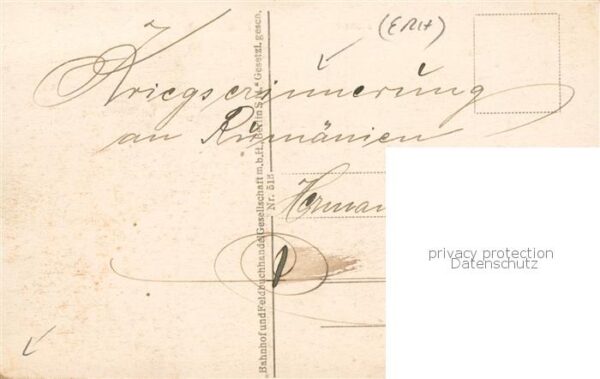 (ERH)
Kriegserinnerung
an Rumänien
Herman
"Bahnhof und Feldbuchhandel Gesellschaft m.b.H., Berlin S. 4." Gesetzl. gesch.
Nr. 515
privacy protection
Datenschutz